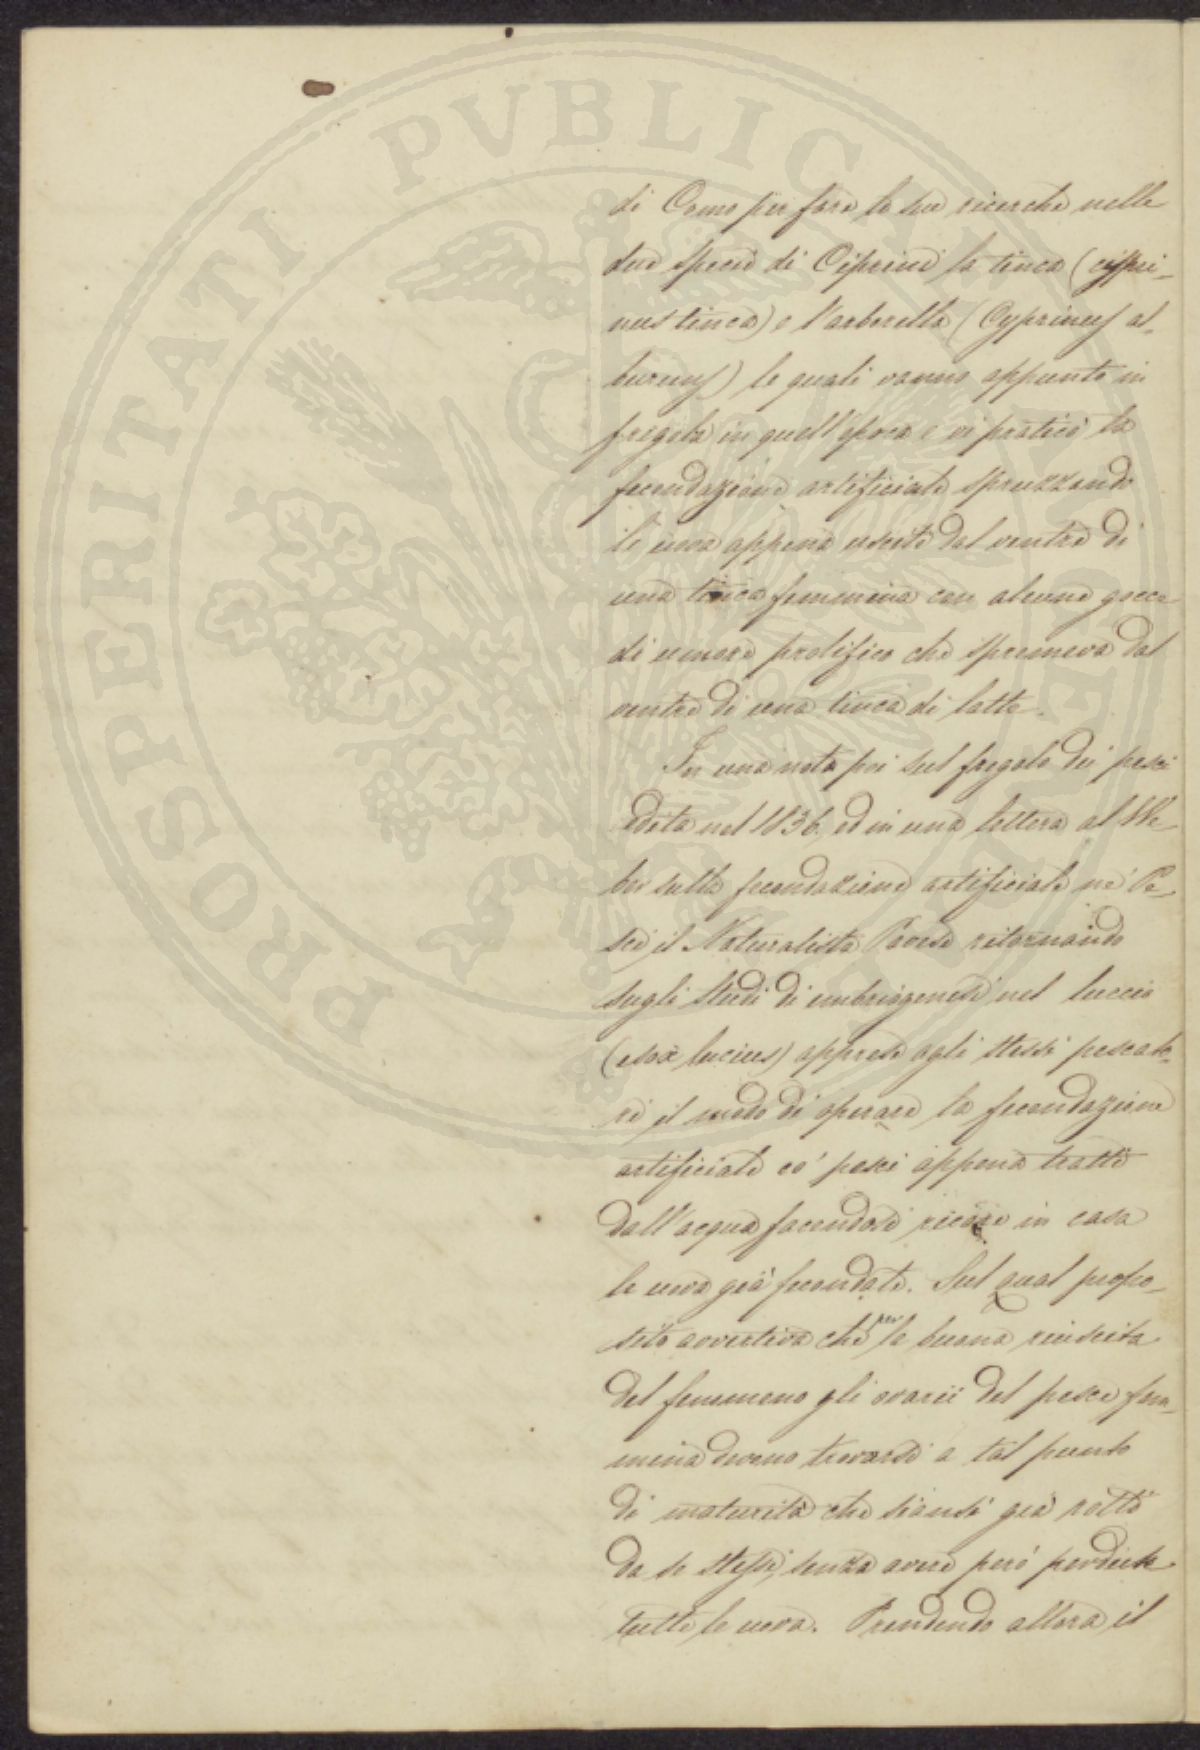 di Como per fare le sue ricerche nelle
due specie di Ciprini la tinca (cypri-
nus tinca) e l'arborella (Cyprinus al-
burnus) le quali vanno appunto in
fregola in quell'epoca e vi praticò la
fecondazione artificiale spruzzando
le uova appena uscite dal ventre di
una tinca femmina con alcune gocce
di umore prolifico che spremeva dal
ventre di una tinca di latte.
In una nota poi sul fregolo dei pesci
edita nel 1836, ed in una lettera al We-
ber sulla fecondazione artificiale ne' Pe-
sci il Naturalista Pavese ritornando
sugli studi di embriogenesi nel luccio
(esox lucius) apprese agli stessi pescato-
ri il modo di operare la fecondazione
artificiale co' pesci appena tratti
dall'acqua facendosi recare in casa
le uova già fecondate. Sul qual propo-
sito avvertiva che per la buona riuscita
del fenomeno gli ovarii del pesce fem-
mina devono trovarsi a tal punto
di maturità che siansi già rotti
da se stessi, senza avere però perdute
tutte le uova. Prendendo allora il
PROSPERITATI PVBLICAE AVGENDAE